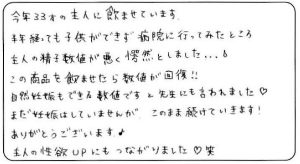 今年33才の主人に飲ませています。
半年経っても子供ができず病院に行ってみたところ
主人の精子数値が悪く愕然としました...
この商品を飲ませたら数値が回復!!
自然妊娠もできる数値ですと先生にも言われました♡
まだ妊娠はしていませんが、このまま続けていきます!
ありがとうございます♪
主人の性欲UPにもつながりました♡笑